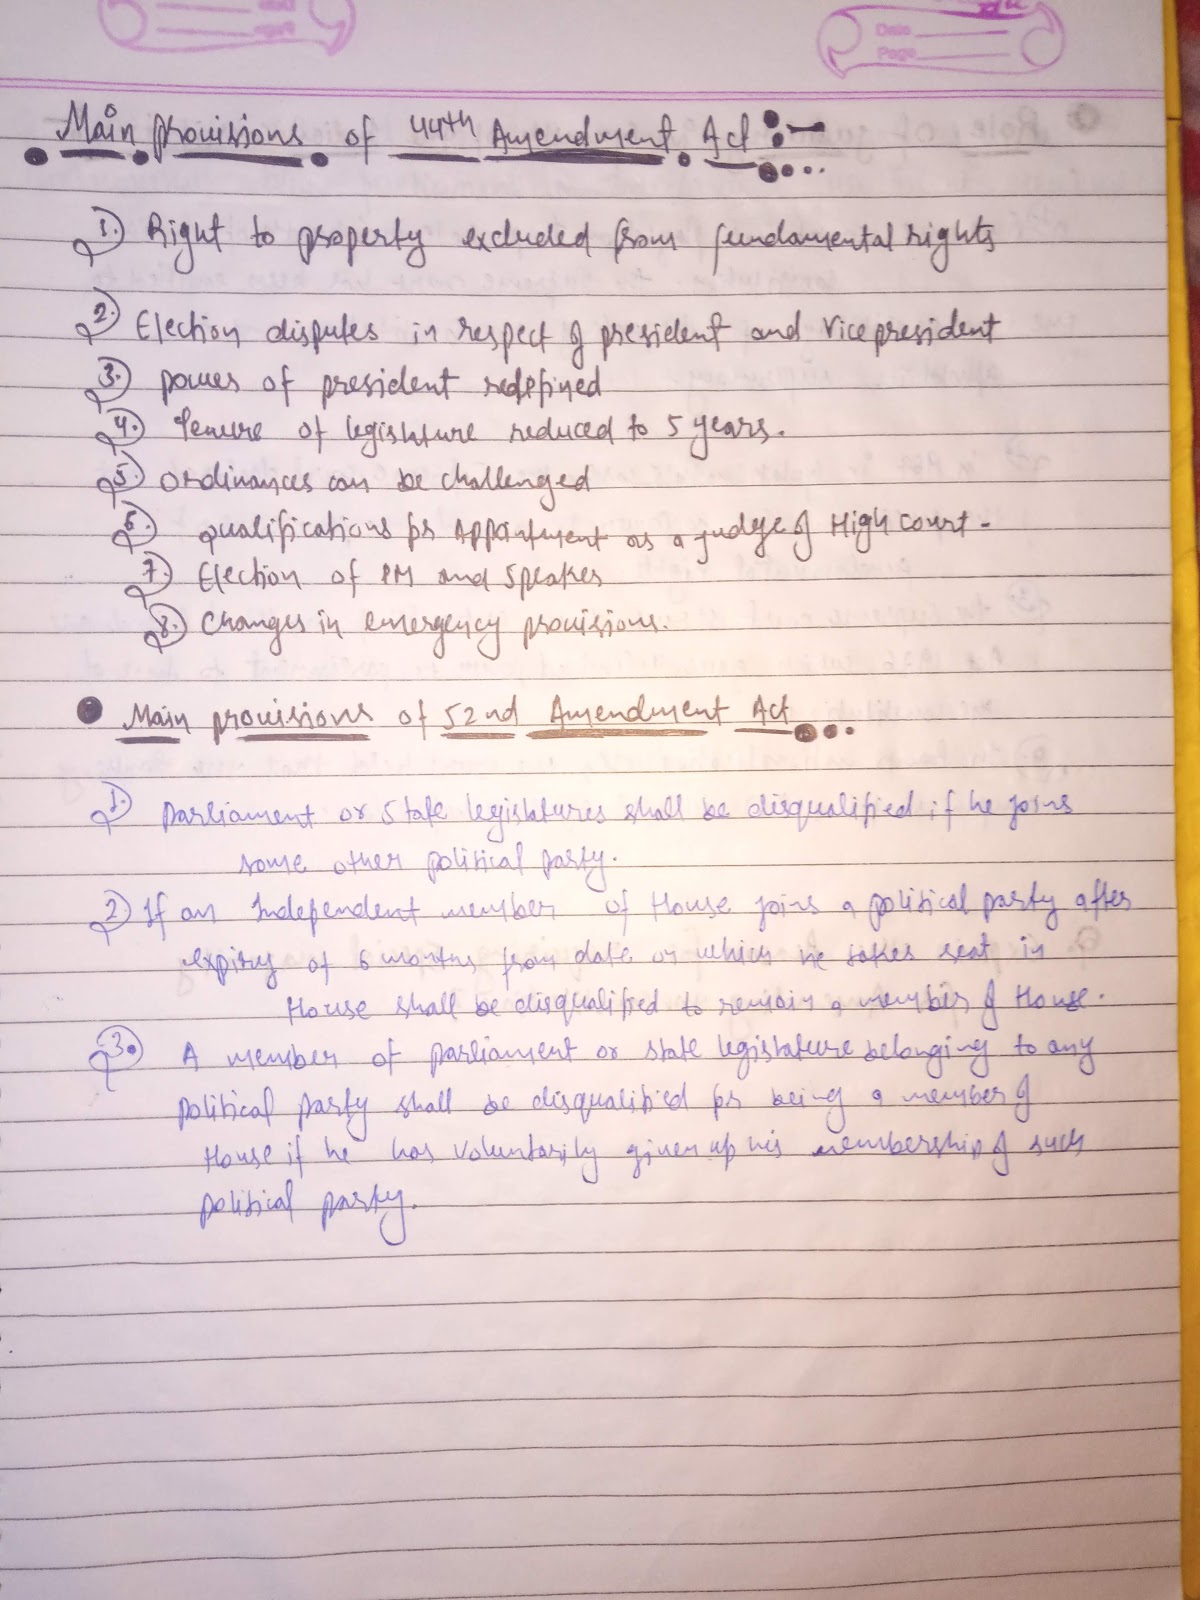 Date
Page
Main provisions of 44th Amendment Act :-
1. Right to property excluded from fundamental rights
2. Election disputes in respect of president and Vice president
3. power of president redefined
4. Tenure of legislature reduced to 5 years.
5. Ordinances can be challenged
6. qualifications for Appointment as a judge of High court -
7. Election of PM and Speaker
8. Changes in emergency provisions.
Main provisions of 52nd Amendment Act
1. Parliament or State legislatures shall be disqualified if he joins
some other political party.
2) If an Independent member of House joins a political party after
expiry of 6 months from date on which he takes seat in
House shall be disqualified to remain a member of House.
3. A member of parliament or state legislature belonging to any
political party shall be disqualified for being a member of
House if he has voluntarily given up his membership of such
political party.